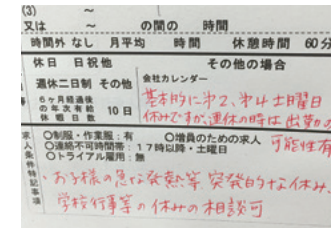 (3) ～
又は ～ の間の 時間
時間外 なし 月平均 時間 休憩時間 60分
休日 日祝他 その他の場合
週休二日制 その他 会社カレンダー
6ヶ月経過後の年次有給休暇日数 10日
基本的に第2、第4土曜日
休みですが、連休の時は出勤の
可能性有
求人条件特記事項
○制服・作業服：有 ○増員のための求人
○連絡不可時間帯：17時以降・土曜日
○トライアル雇用：無
・お子様の急な発熱等、突発的な休み、
学校行事等の休みの相談可